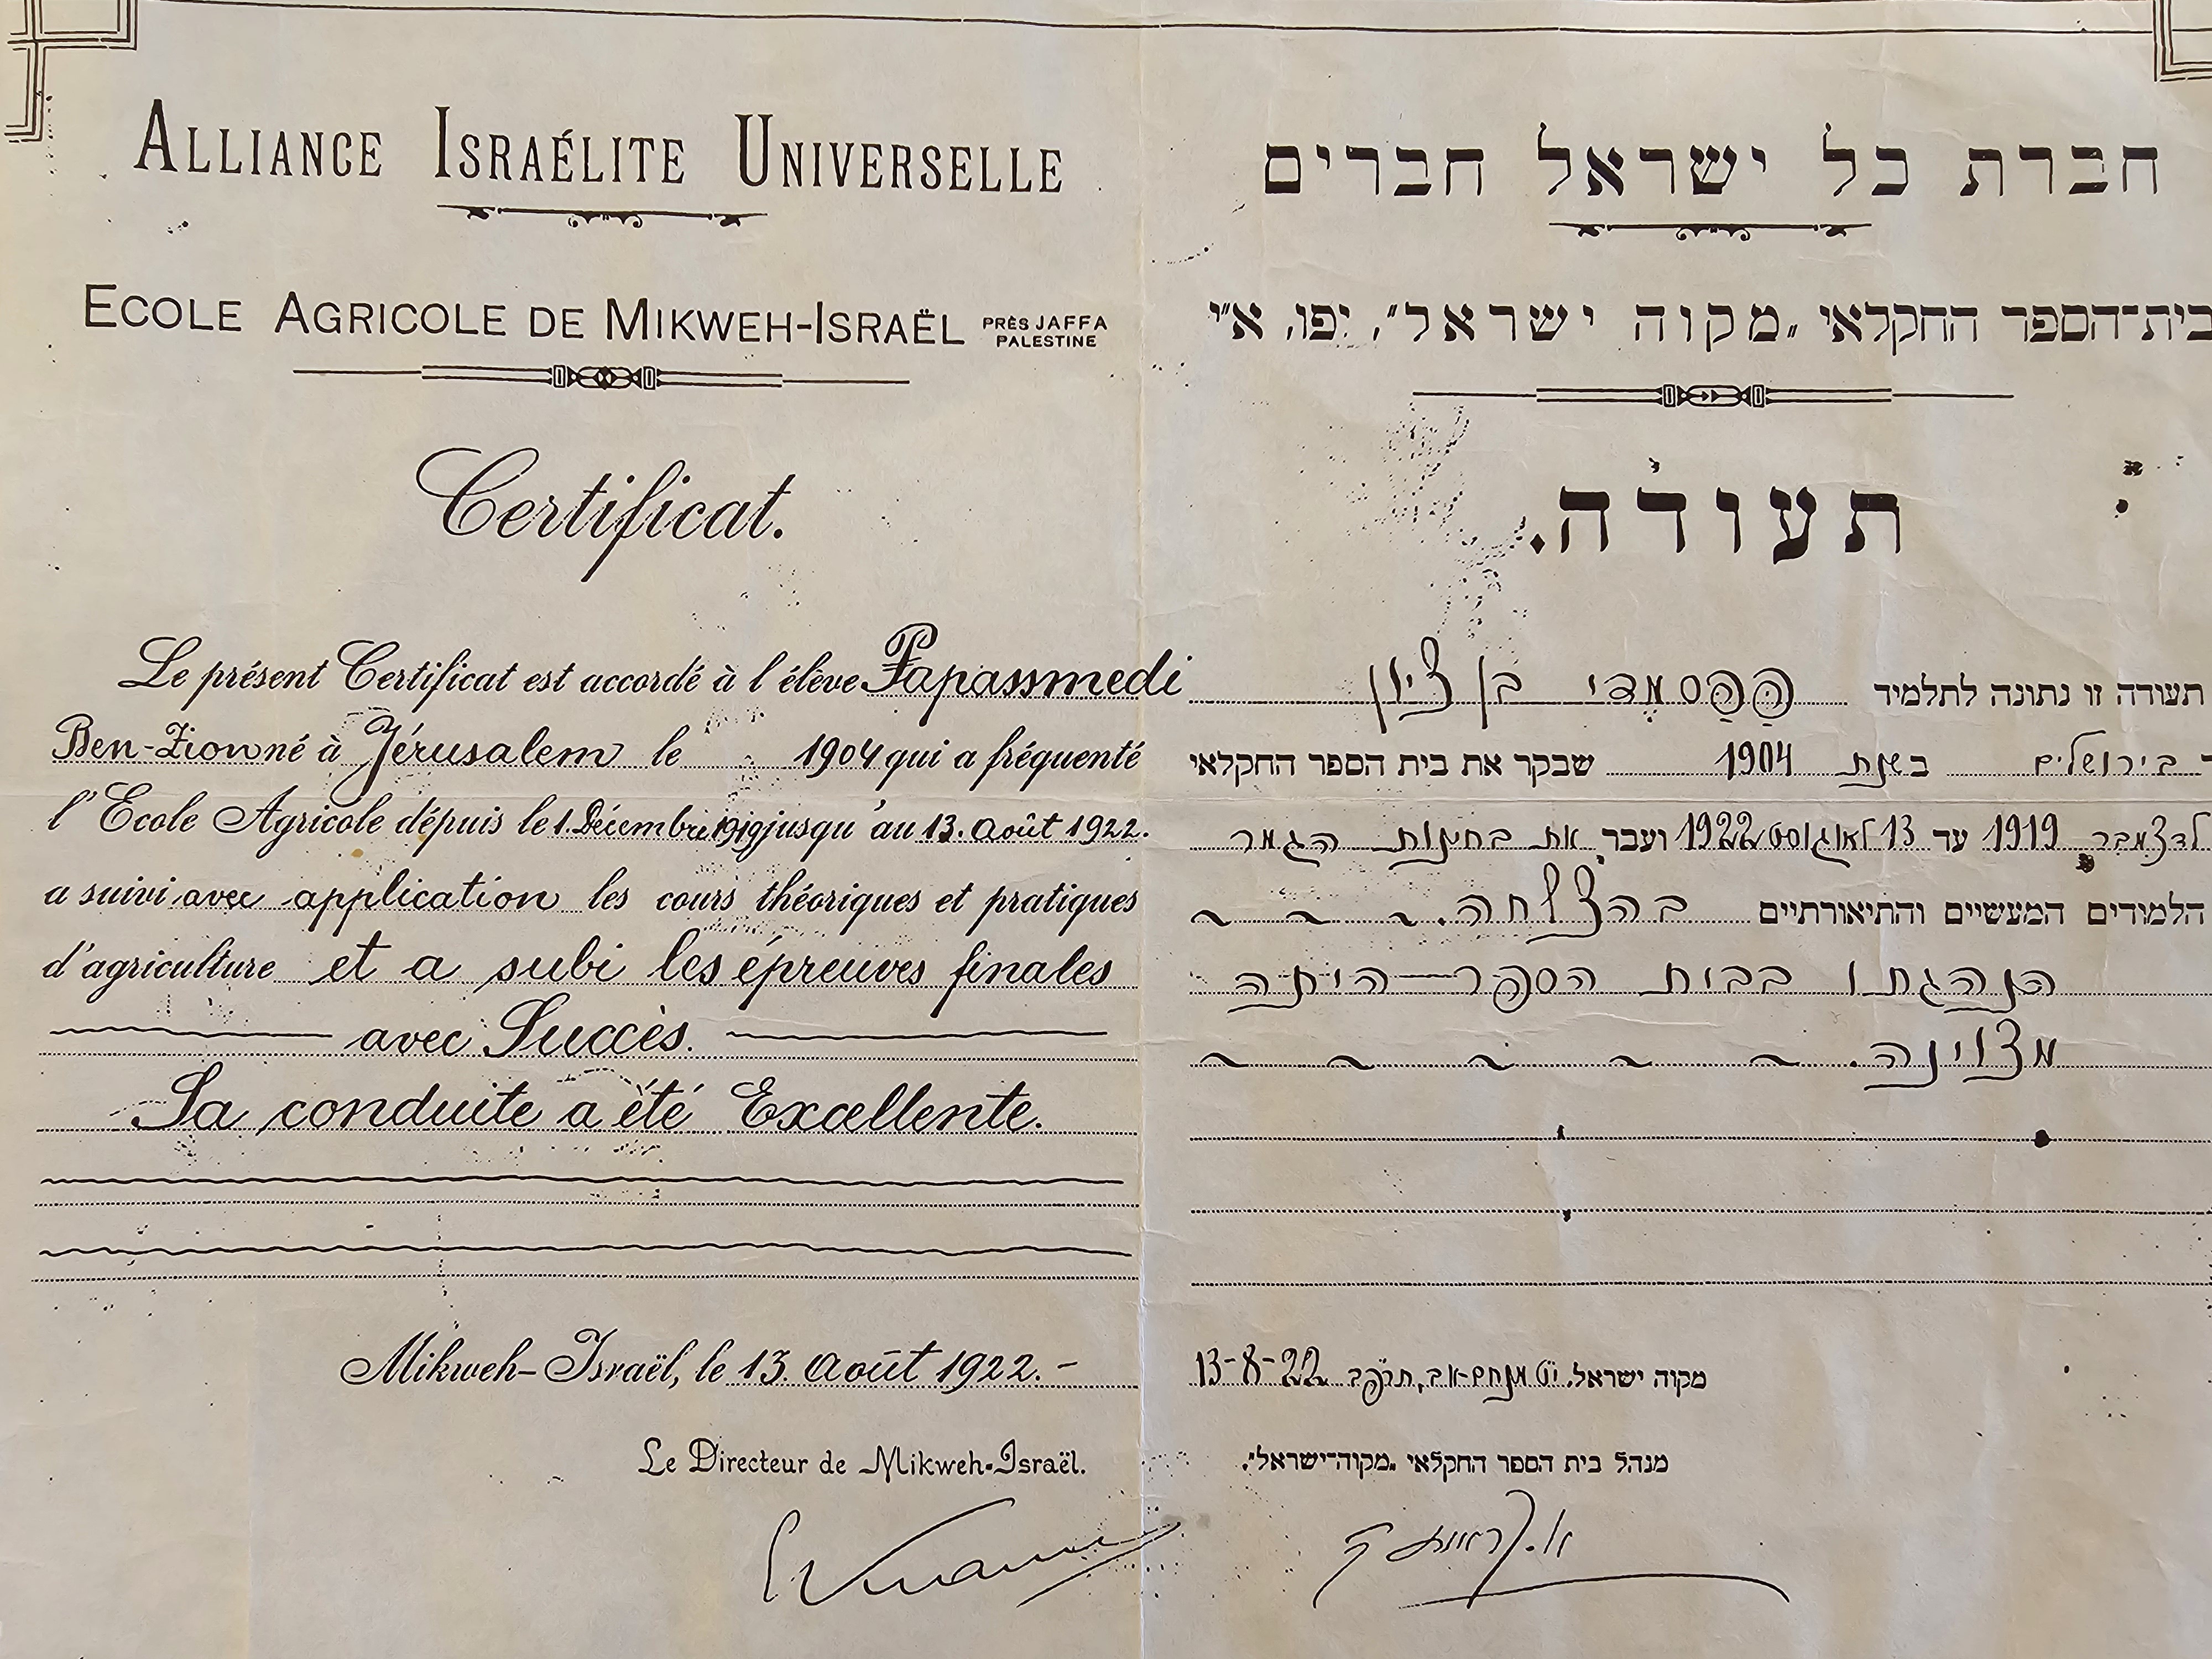 ALLIANCE ISRAÉLITE UNIVERSELLE
ECOLE AGRICOLE DE MIKWEH-ISRAËL PRÈS JAFFA PALESTINE
Certificat.
Le présent Certificat est accordé à l'élève Papassmedi
Ben-Zion né à Jérusalem le 1904 qui a fréquenté
l'Ecole Agricole dépuis le 1. Décembre 1919 jusqu'au 13. Août 1922.
a suivi avec application les cours théoriques et pratiques
d'agriculture et a subi les épreuves finales
avec Succès.
Sa conduite a été Excellente.
Mikweh-Israël, le 13. Août 1922.-
Le Directeur de Mikweh-Israël.
חברת כל ישראל חברים
בית־הספר החקלאי „מקוה ישראל”, יפו, א״י
תעודה.
תעודה זו נתונה לתלמיד פַּפַּסמֶדי בן ציון
בירושלים בשנת 1904 שבקר את בית הספר החקלאי
לדצמבר 1919 עד 13 לאוגוסט 1922 ועבר את בחינות הגמר
הלמודים המעשיים והתיאורתיים בהצלחה.
הנהגתו בבית הספר היתה
מצוינה.
מקוה ישראל, י״ט מנחם-אב, תרפ״ב 13-8-22
מנהל בית הספר החקלאי „מקוה־ישראל”.
א. קראוזה